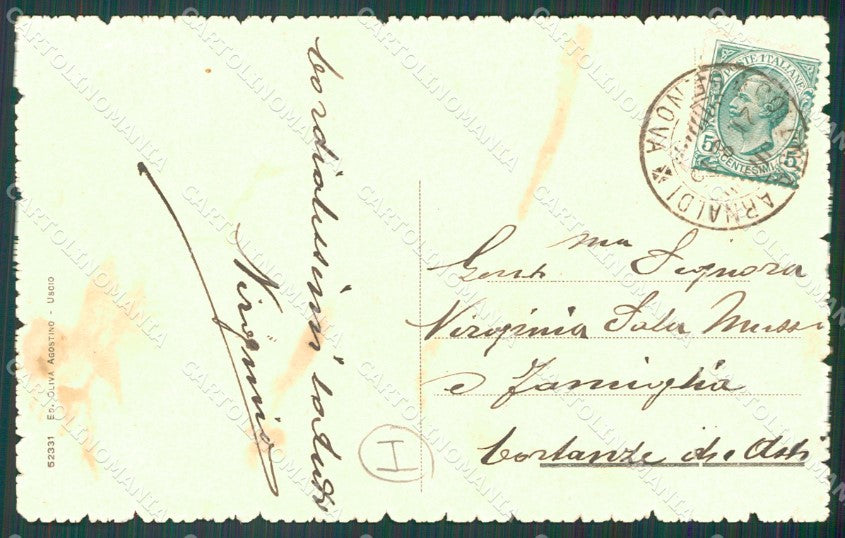 Cordialissimi saluti
Virginia
Gent.ma Signora
Virginia Sala Musso
e Famiglia
Cortanze d'Asti
POSTE ITALIANE
5 CENTESIMI 5
COLONIA ARNALDI
GENOVA
H
52331 Ed. Oliva Agostino - Uscio
CARTOLINOMANIA